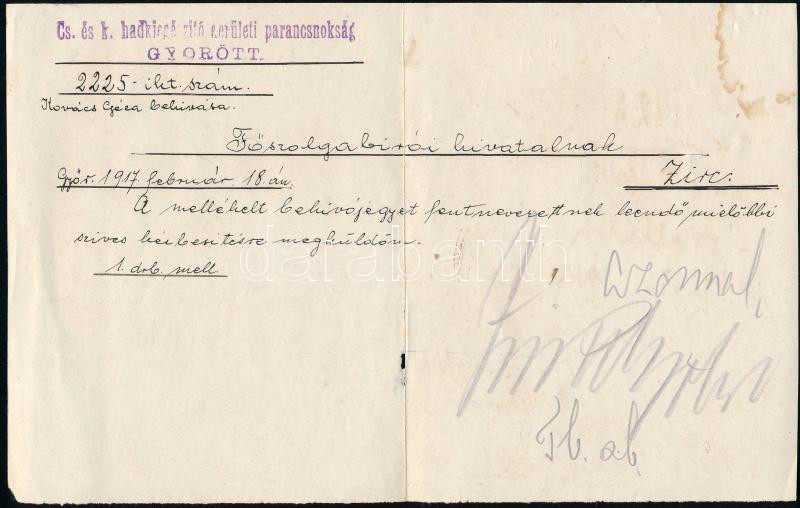 Cs. és k. hadkiegé zitő kerületi parancsnokság
GYŐRÖTT.
2225 - ikt. szám.
Kovács Géza behivása.
Főszolgabirói hivatalnak
Győr. 1917 február 18.án.
Zirc.
A mellékelt behivójegyet fentnevezettnek leendő mielőbbi
szives kézbesitésre megküldöm.
1. drb. mell
azonnal,
darabanth